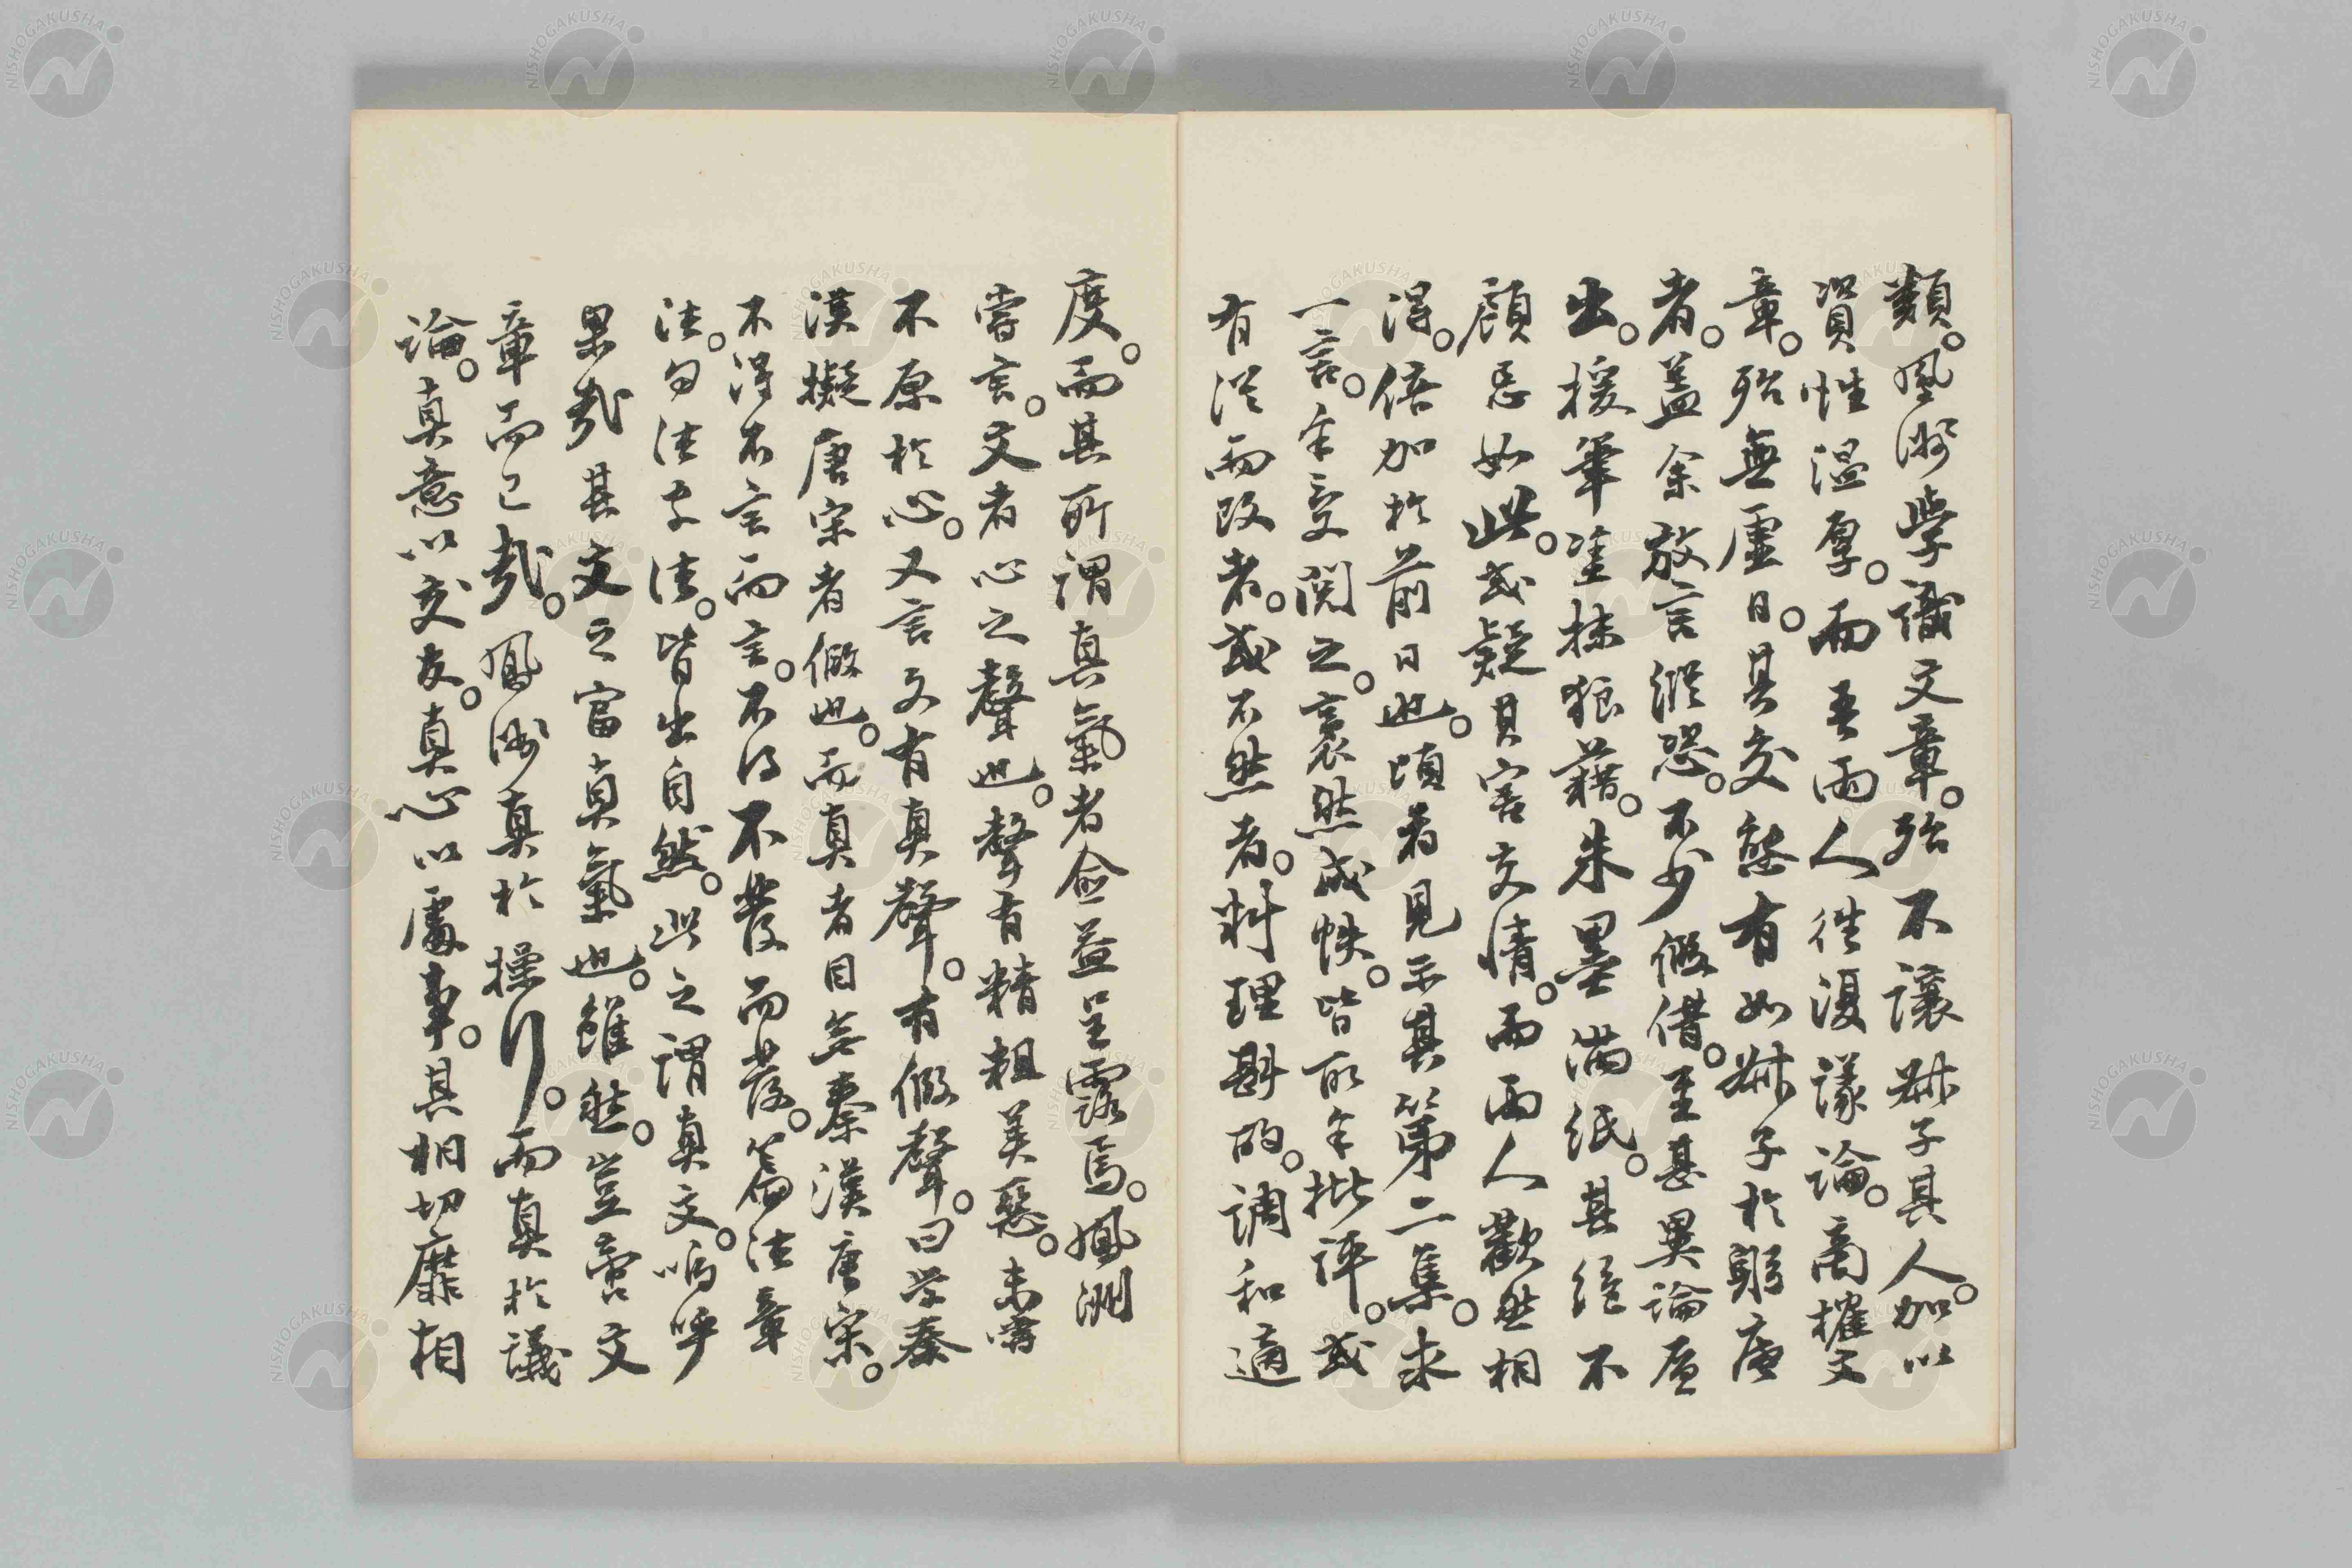 類。鳳洲學識文章。殆不讓叔子其人。加以
資性溫厚。而吾兩人往復議論。商搉文
章。殆無虛日。其交契有如叔子於躬庵
者。蓋余放言縱恣。不少假借。至甚異論層
出。援筆塗抹狼藉。朱墨滿紙。其絕不
顧忌如此。或疑其害交情。而兩人歡然相
得。倍加於前日也。頃者見示其第二集。求
一言。余受閱之。裒然成帙。皆所余批評。或
有從而改者。或不然者。料理斟酌。調和適
度。而其所謂真氣者。益呈露焉。鳳洲
嘗言。文者心之聲也。聲有精粗美惡。未嘗
不原於心。又言文有真聲。有假聲。曰學秦
漢擬唐宋者假也。而真者目無秦漢唐宋。
不得不言而言。不得不發而發。篇法章
法。句法字法。皆出自然。此之謂真文。嗚呼
果哉其文之富真氣也。雖然。豈啻文
章而已哉。鳳洲真於操行。而真於議
論。真意以交友。真心以處事。其相切靡相